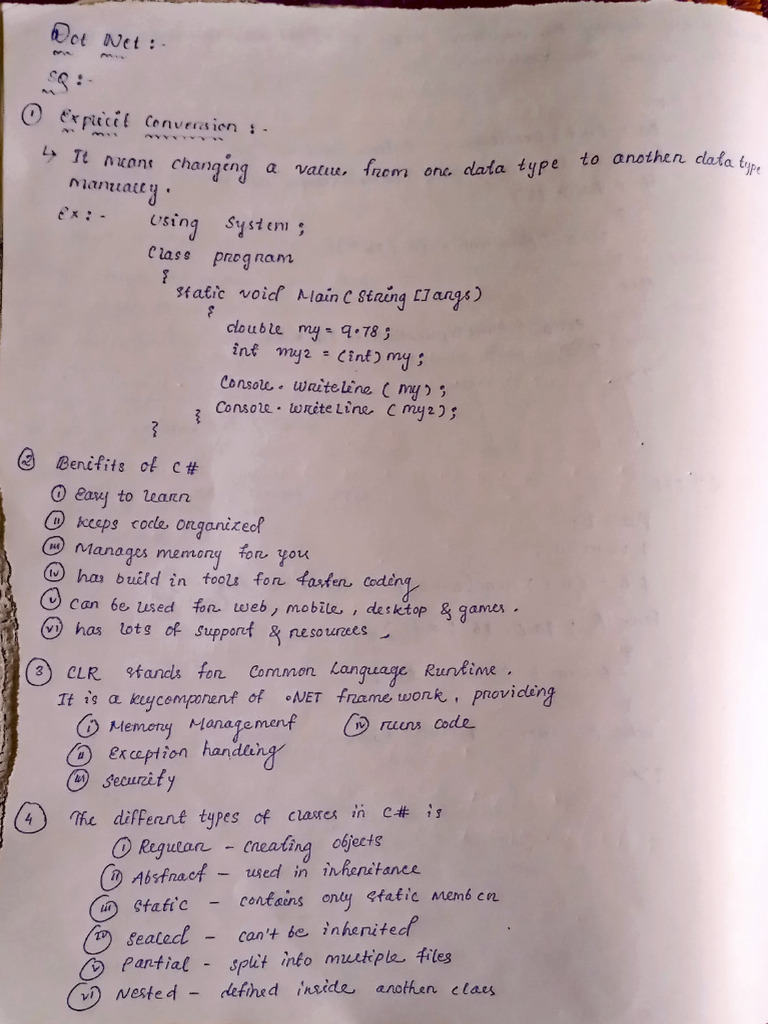 Dot Net :-
SQ :-
① Explicit Conversion :-
↳ It means changing a value from one data type to another data type
manually.
Ex :- Using System ;
Class program
{
Static void Main ( String [] args )
{
double my = 9.78 ;
int my2 = (int) my ;
Console . WriteLine ( my ) ;
} Console . WriteLine ( my2 ) ;
}
② Benifits of C#
(i) Easy to learn
(ii) Keeps code organized
(iii) Manages memory for you
(iv) has build in tools for faster coding
(v) can be used for web, mobile, desktop & games .
(vi) has lots of support & resources
③ CLR stands for Common Language Runtime .
It is a keycomponent of .NET frame work, providing
(i) Memory Management (iv) runs code
(ii) Exception handling
(iii) Security
④ The differnt types of classes in C# is
(i) Regular - creating objects
(ii) Abstract - used in inheritance
(iii) Static - contains only static member
(iv) Sealed - can't be inherited
(v) Partial - split into multiple files
(vi) Nested - defined inside another class